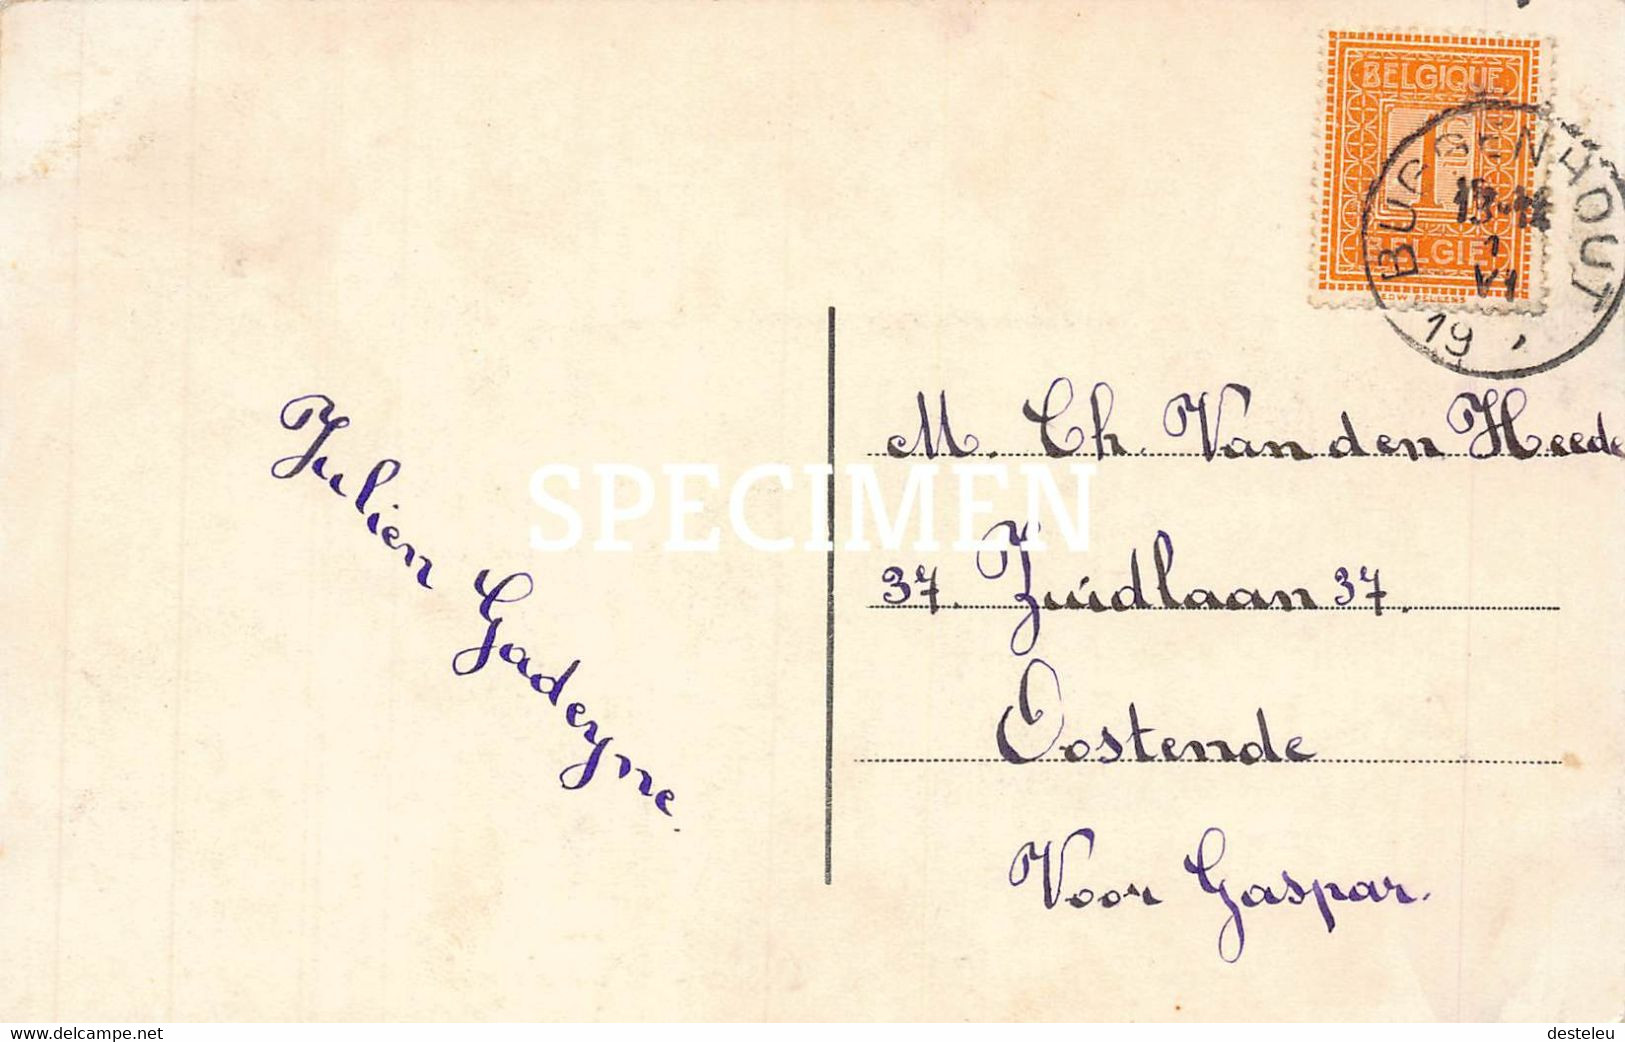 BELGIQUE
1
BELGIË
EDW PELLENS
BUGGENHOUT
1
VI
19
M. Ch. Van den Heede
SPECIMEN
37. Zuidlaan 37.
Oostende
Voor Gaspar.
Julien Gadeyne.
www.delcampe.net
desteleu